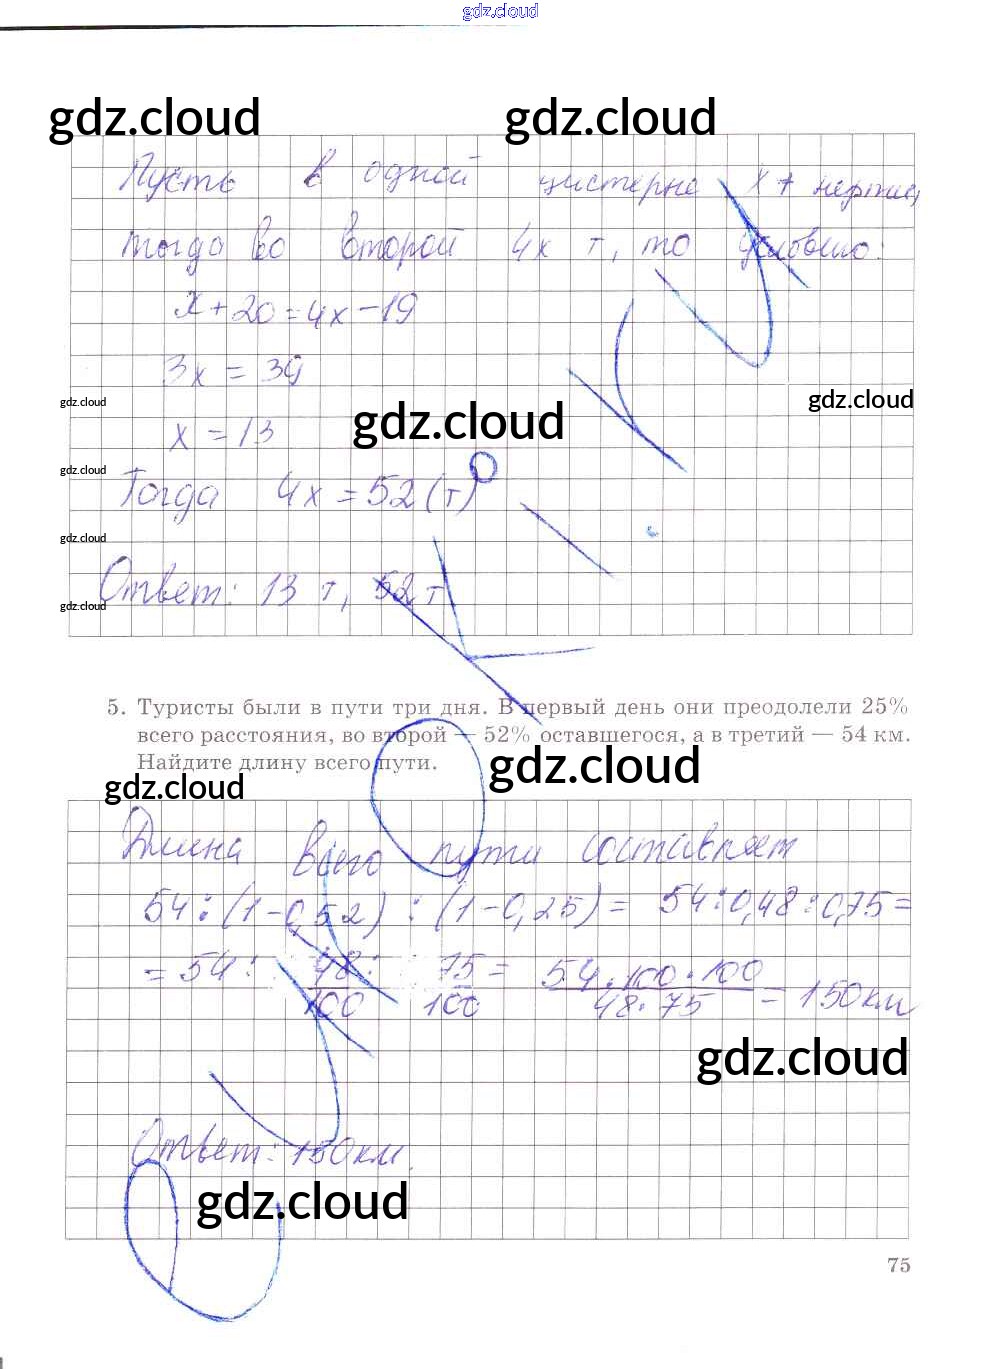 gdz.cloud
gdz.cloud gdz.cloud
Пусть в одной цистерне x т нефти,
тогда во второй 4x т, то условию:
x + 20 = 4x - 19
3x = 39
gdz.cloud gdz.cloud gdz.cloud
x = 13
gdz.cloud
Тогда 4x = 52 (т)
gdz.cloud
Ответ: 13 т, 52 т
gdz.cloud
5. Туристы были в пути три дня. В первый день они преодолели 25%
всего расстояния, во второй — 52% оставшегося, а в третий — 54 км.
Найдите длину всего пути.
gdz.cloud gdz.cloud
Длина всего пути составляет
54 : (1 - 0,52) : (1 - 0,25) = 54 : 0,48 : 0,75 =
= 54 : 48/100 : 75/100 = 54·100·100/48·75 = 150 км
gdz.cloud
Ответ: 150 км.
gdz.cloud
75